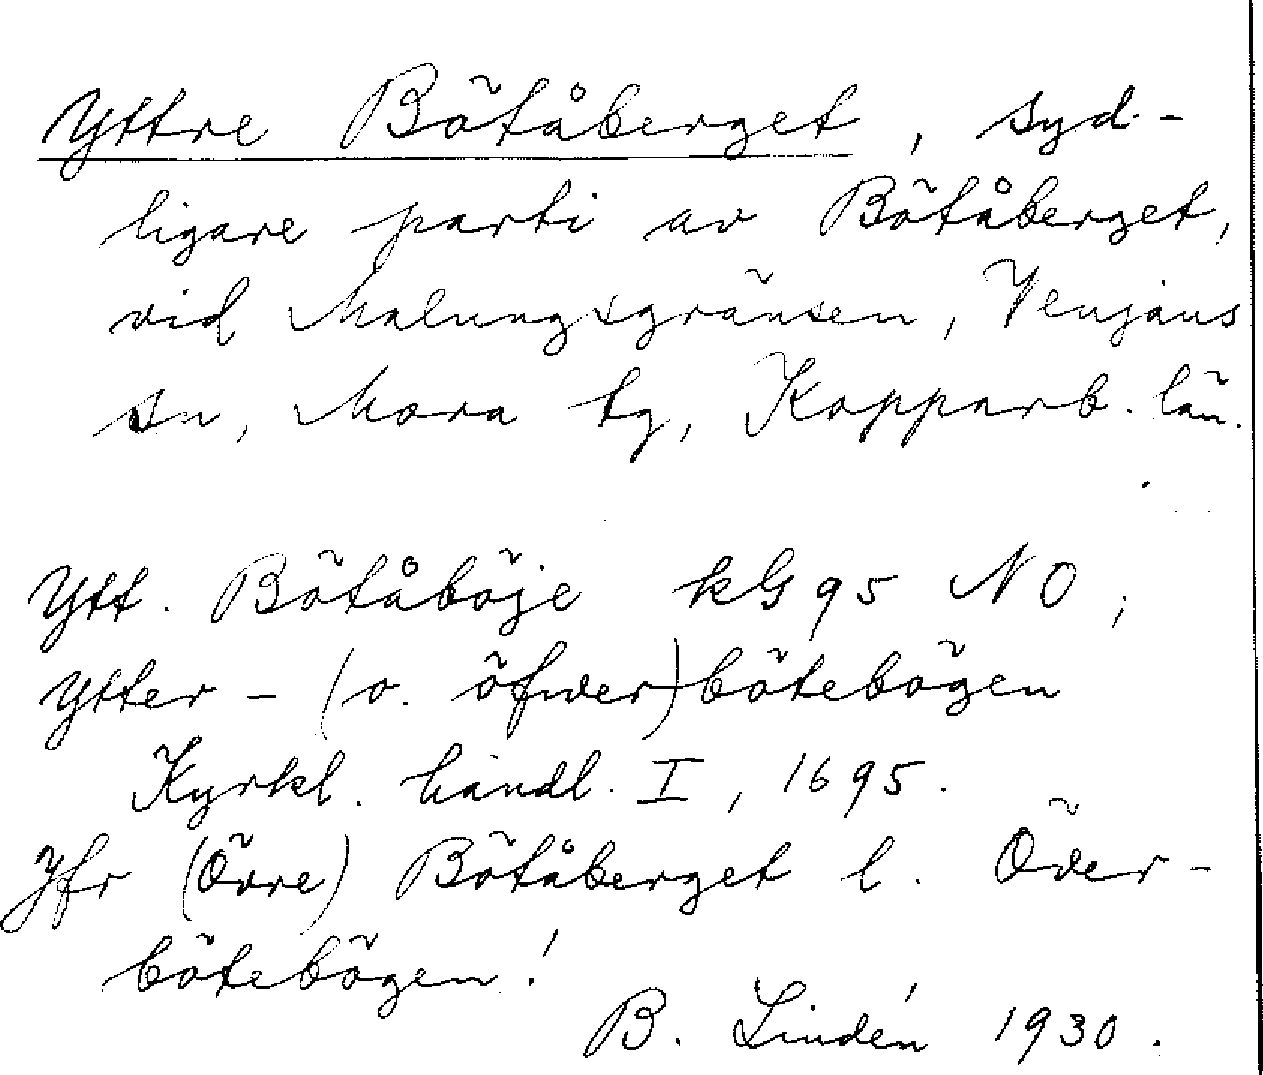 Yttre Bötåberget, syd-
ligare parti av Bötåberget,
vid Malungsgränsen, Venjans
sn, Mora tg, Kopparb. län.
Ytt. Bötåböje kG 95 NO;
Ytter - (o. öfwer) bötebögen
Kyrkl. handl. I, 1695.
Jfr (Övre) Bötåberget l. Över-
bötebögen!
B. Lindén 1930.